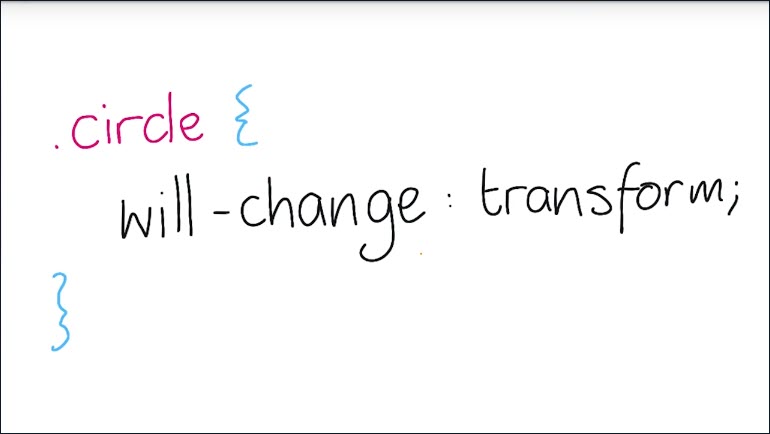 .circle {
will-change: transform;
}